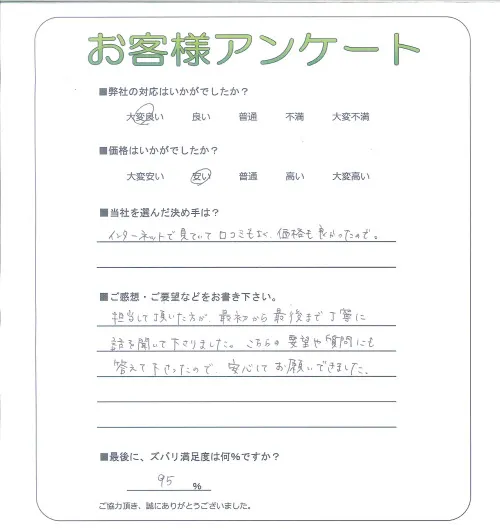 お客様アンケート
■弊社の対応はいかがでしたか？
大変良い 良い 普通 不満 大変不満
■価格はいかがでしたか？
大変安い 安い 普通 高い 大変高い
■当社を選んだ決め手は？
インターネットで見ていて口コミもよく、価格も良かったので。
■ご感想・ご要望などをお書き下さい。
担当して頂いた方が、最初から最後まで丁寧に
話を聞いて下さりました。こちらの要望や質問にも
答えて下さったので、安心してお願いできました。
■最後に、ズバリ満足度は何%ですか？
95 %
ご協力頂き、誠にありがとうございました。